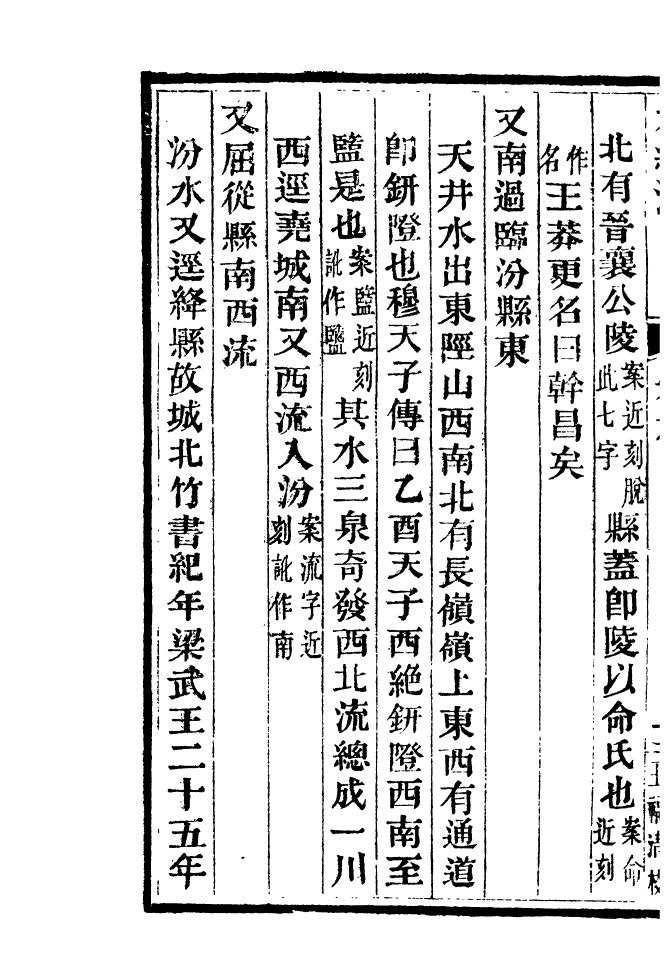 福清校
北有晉襄公陵案近刻脫此七字縣蓋卽陵以命氏也案命近刻
作名王莽更名曰幹昌矣
又南過臨汾縣東
天井水出東陘山西南北有長嶺嶺上東西有通道
卽鈃隥也穆天子傳曰乙酉天子西絕鈃隥西南至
盬是也案盬近刻訛作鹽其水三泉奇發西北流總成一川
西逕堯城南又西流入汾案流字近刻訛作南
又屈從縣南西流
汾水又逕絳縣故城北竹書紀年梁武王二十五年